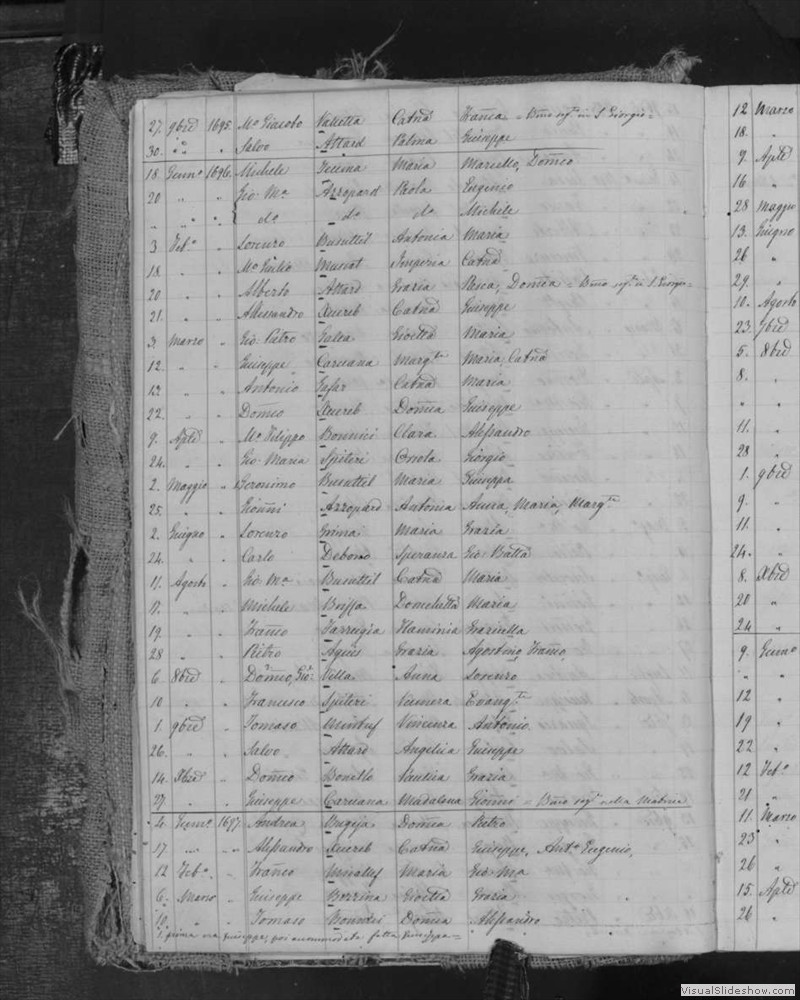 27. 9bre 1695. Mo. Giacobo Valletta Catna Franca = Bmo segto in S. Giorgio =
30. do " Salvo Attard Palma Giuseppe
18 Genno. 1696. Michele Maria Mariello, Domco
20 " " Gio. Ma. Azzopard Paola Eugenio
" " " do do do Michele
3 Febo. " Lorenzo Busuttil Antonia Maria
18. " " Mo. Giulio Muscat Imperia Catna
20 " " Alberto Attard Grazia Domca = Bmo segto in S. Giorgio =
21. " " Alessandro Xuereb Catna Giuseppe
3 Marzo " Gio. Pietro Galea Gioetta Maria
12. " " Giuseppe Caruana Margta Maria, Catna
12 " " Antonio Gafar Catna Maria
22. " " Domco Xuereb Domca Giuseppe
9. Aple " Mo. Filippo Bonnici Clara Alessandro
24. " " Gio. Maria Spiteri Giorgio
2. Maggio " Geronimo Busuttil Maria Giuseppa
25. " " Gionni Azzopard Antonia Anna, Maria, Margta
2. Giugno " Lorenzo Grima Maria Grazia
24. " " Carlo Debono Speranza Gio. Batta
11. Agosto " Gio. Ma Busuttil Catna Maria
17. " " Michele Briffa Maria
19. " " Franco Farrugia Flaminia Graziella
28 " " Pietro Agius Grazia Agostino, Franco,
6. 8bre " Domco, Gio. Vella Anna Lorenzo
10 " " Francesco Spiteri Evangta
1. 9bre " Tomaso Vincenza Antonio
26. " " Salvo Attard Angelica Giuseppe
14. Xbre " Domco Bonello Santua Grazia
27. " " Giuseppe Caruana Madalena Gionni = Bmo segto nella Matrice
4. Genno. 1697. Andrea Bugeja Domca Pietro
17 " " Alessandro Xuereb Catna Giuseppe, Anto. Eugenio,
12 Febo. " Franco Maria Gio Ma
6. Marzo " Giuseppe Gioetta Grazia
10. " " Tomaso Domca Alessandro
prima era Giuseppe, poi accommodata fatta Giuseppa =
12 Marzo
18. "
9. Aple
16 "
28 Maggio
13. Giugno
26 "
29. "
10. Agosto
23. 7bre
5. 8bre
8. "
" "
11. "
28 "
1. 9bre
9. "
11. "
24. "
8. Xbre
20 "
24 "
9. Genno
" "
12 "
19 "
22 "
12 Febo.
21 "
11. Marzo
23 "
26 "
15. Aple
26 "
VisualSlideshow.com